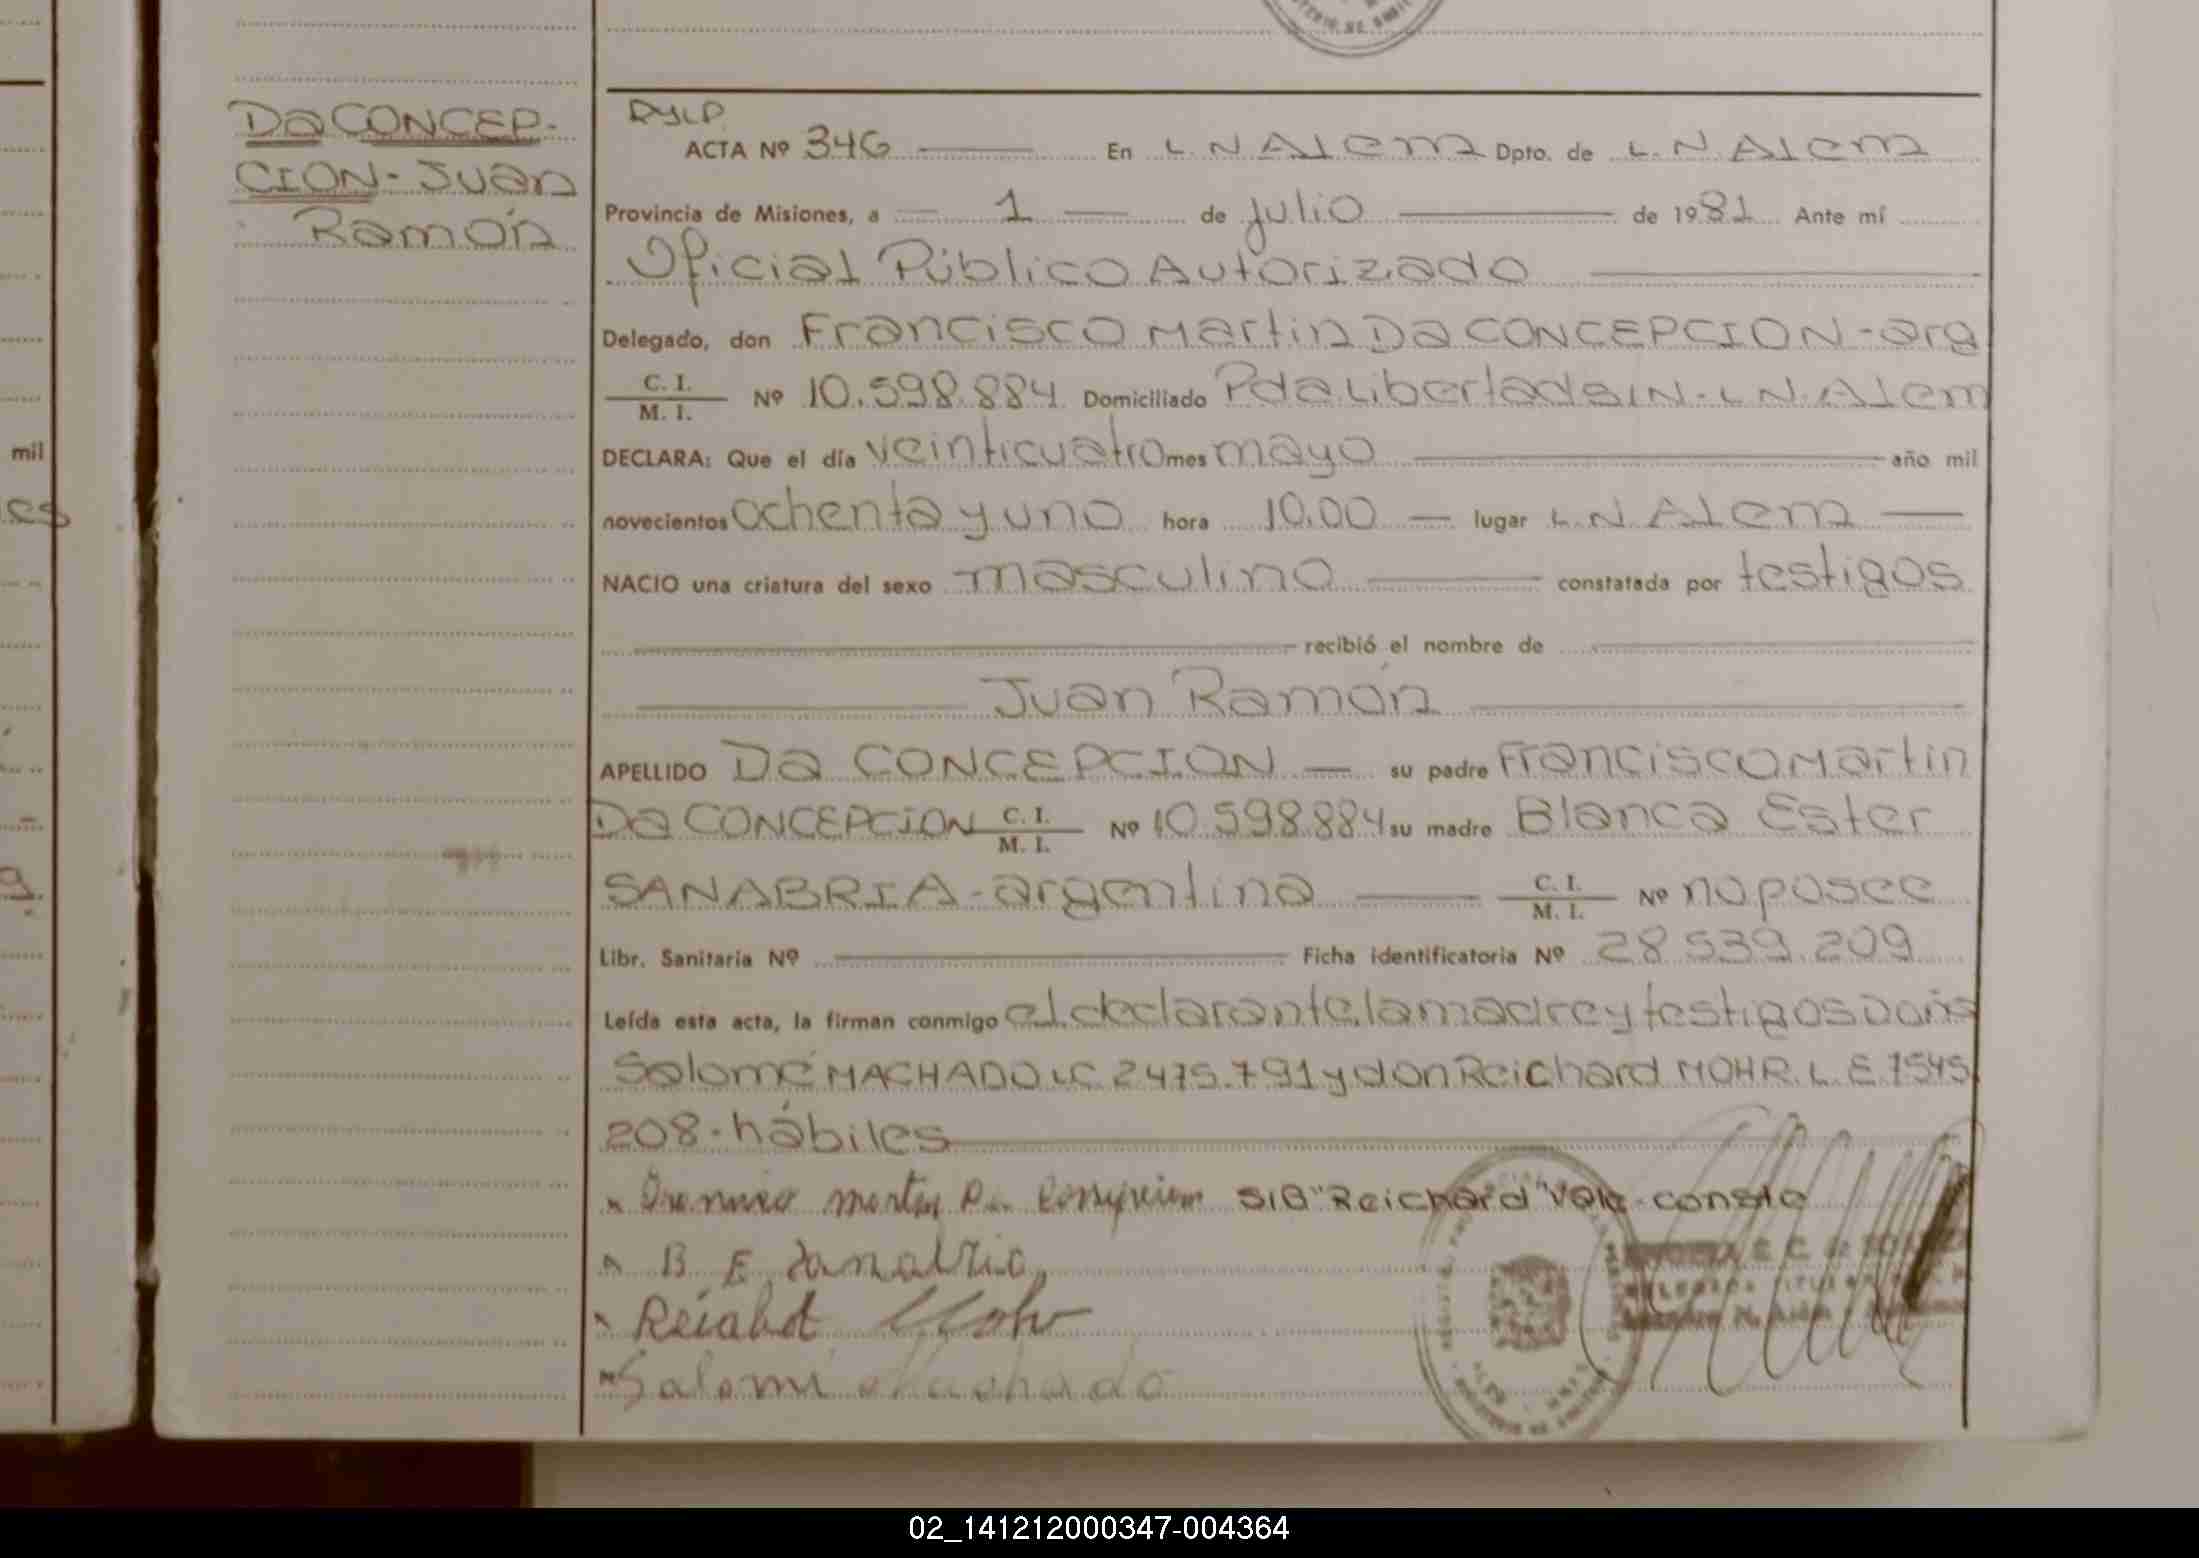 Da CONCEP-
CION-Juan
Ramón
mil
es
DyLP
ACTA Nº 346 En L.N.Alem Dpto. de L.N.Alem
Provincia de Misiones, a 1 de julio de 1981 Ante mí
Oficial Público Autorizado
Delegado, don Francisco Martin Da CONCEPCION-arg
C. I.
M. I. Nº 10.598.884 Domiciliado Pda Libertad S/N-L.N.Alem
DECLARA: Que el día veinticuatro mes mayo año mil
novecientos ochenta y uno hora 10.00 lugar L.N.Alem
NACIO una criatura del sexo masculino constatada por testigos
recibió el nombre de
Juan Ramón
APELLIDO Da CONCEPCION su padre Francisco Martin
Da CONCEPCION C. I. M. I. Nº 10.598.884 su madre Blanca Ester
SANABRIA-argentina C. I. M. I. Nº no posee
Libr. Sanitaria Nº Ficha identificatoria Nº 28.539.209
Leída esta acta, la firman conmigo el declarante, la madre y testigos Doña
Salomé MACHADO LC 2475.791 y don Reichard MOHR.L.E.7545
208-hábiles
S/B "Reichard" Vale-conste
B E Sanabria
Mohr
Salomé Machado
02_141212000347-004364